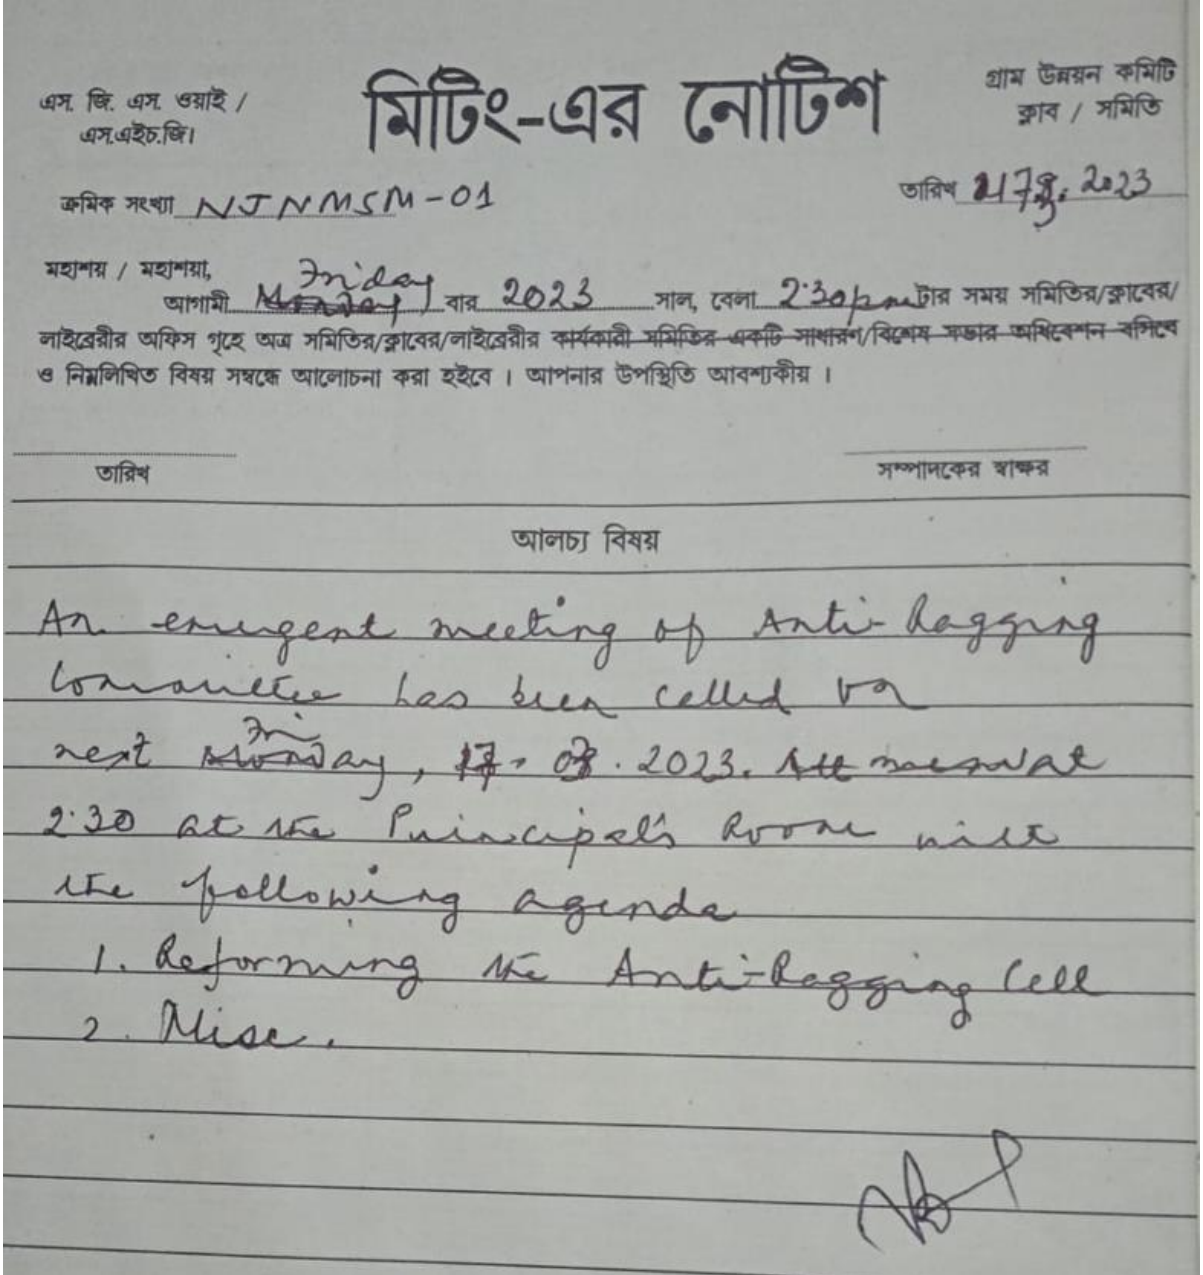 এস. জি. এস. ওয়াই /
এস.এইচ.জি।
মিটিং-এর নোটিশ
গ্রাম উন্নয়ন কমিটি
ক্লাব / সমিতি
ক্রমিক সংখ্যা NJNMSM-01
তারিখ 2023
মহাশয় / মহাশয়া,
Friday
আগামী Monday বার 2023 সাল, বেলা 2.30pm টার সময় সমিতির/ক্লাবের/
লাইব্রেরীর অফিস গৃহে অত্র সমিতির/ক্লাবের/লাইব্রেরীর কার্যকারী সমিতির একটি সাধারণ/বিশেষ সভার অধিবেশন বসিবে
ও নিম্নলিখিত বিষয় সম্বন্ধে আলোচনা করা হইবে । আপনার উপস্থিতি আবশ্যকীয় ।
তারিখ
সম্পাদকের স্বাক্ষর
আলচ্য বিষয়
An emergent meeting of Anti-Ragging
Committee has been called on
Fri
next Monday, 2023. at
2.30 at the Principal's Room with
the following agenda
1. Reforming the Anti-Ragging Cell
2. Misc.